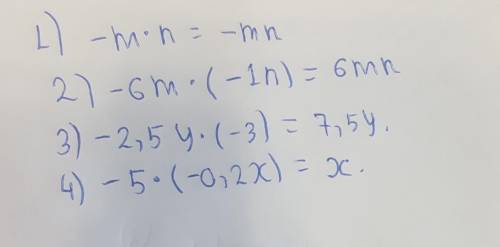 1) -m·n = -mn
2) -6m·(-1n) = 6mn
3) -2,5y·(-3) = 7,5y.
4) -5·(-0,2x) = x.